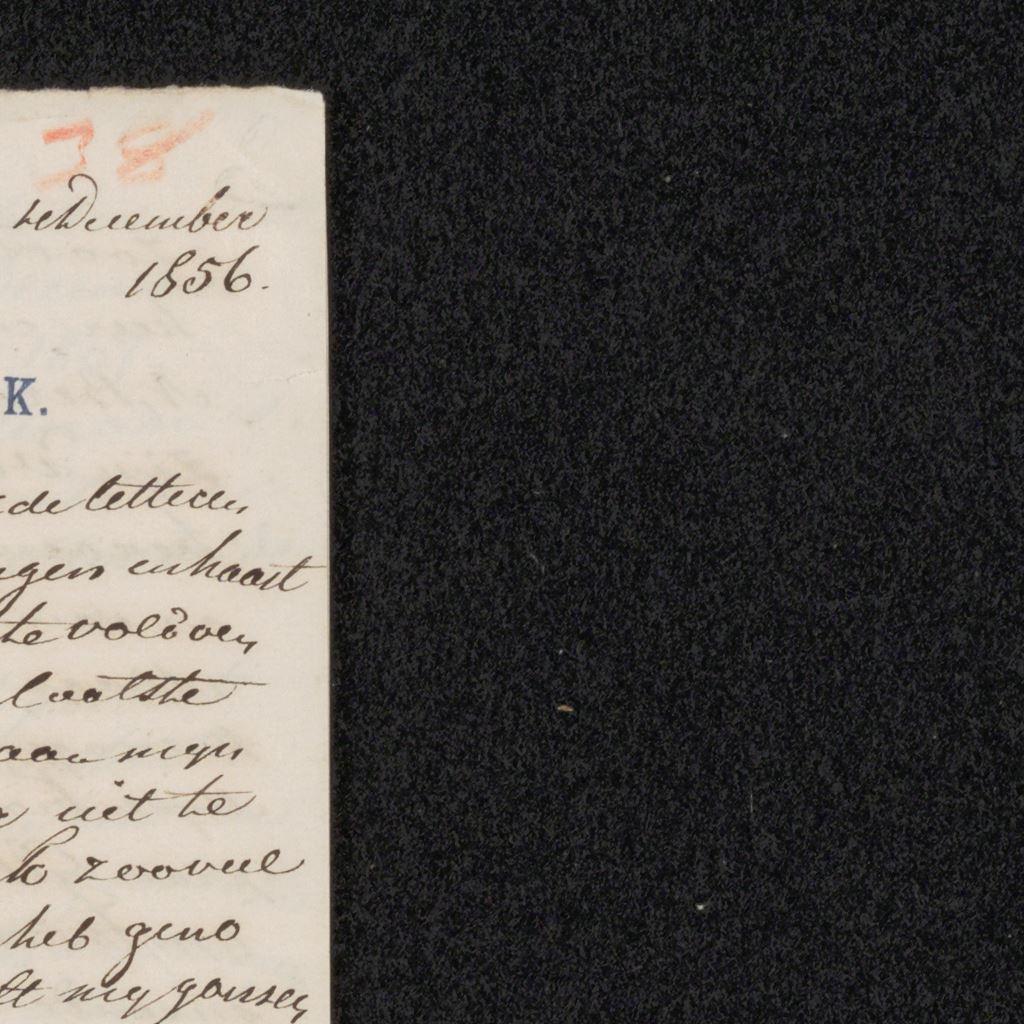 38
December
1856.
K.
de letteren
gen en haast
te voldoen
laatste
mijn
uit te
zooveel
heb geno
mij